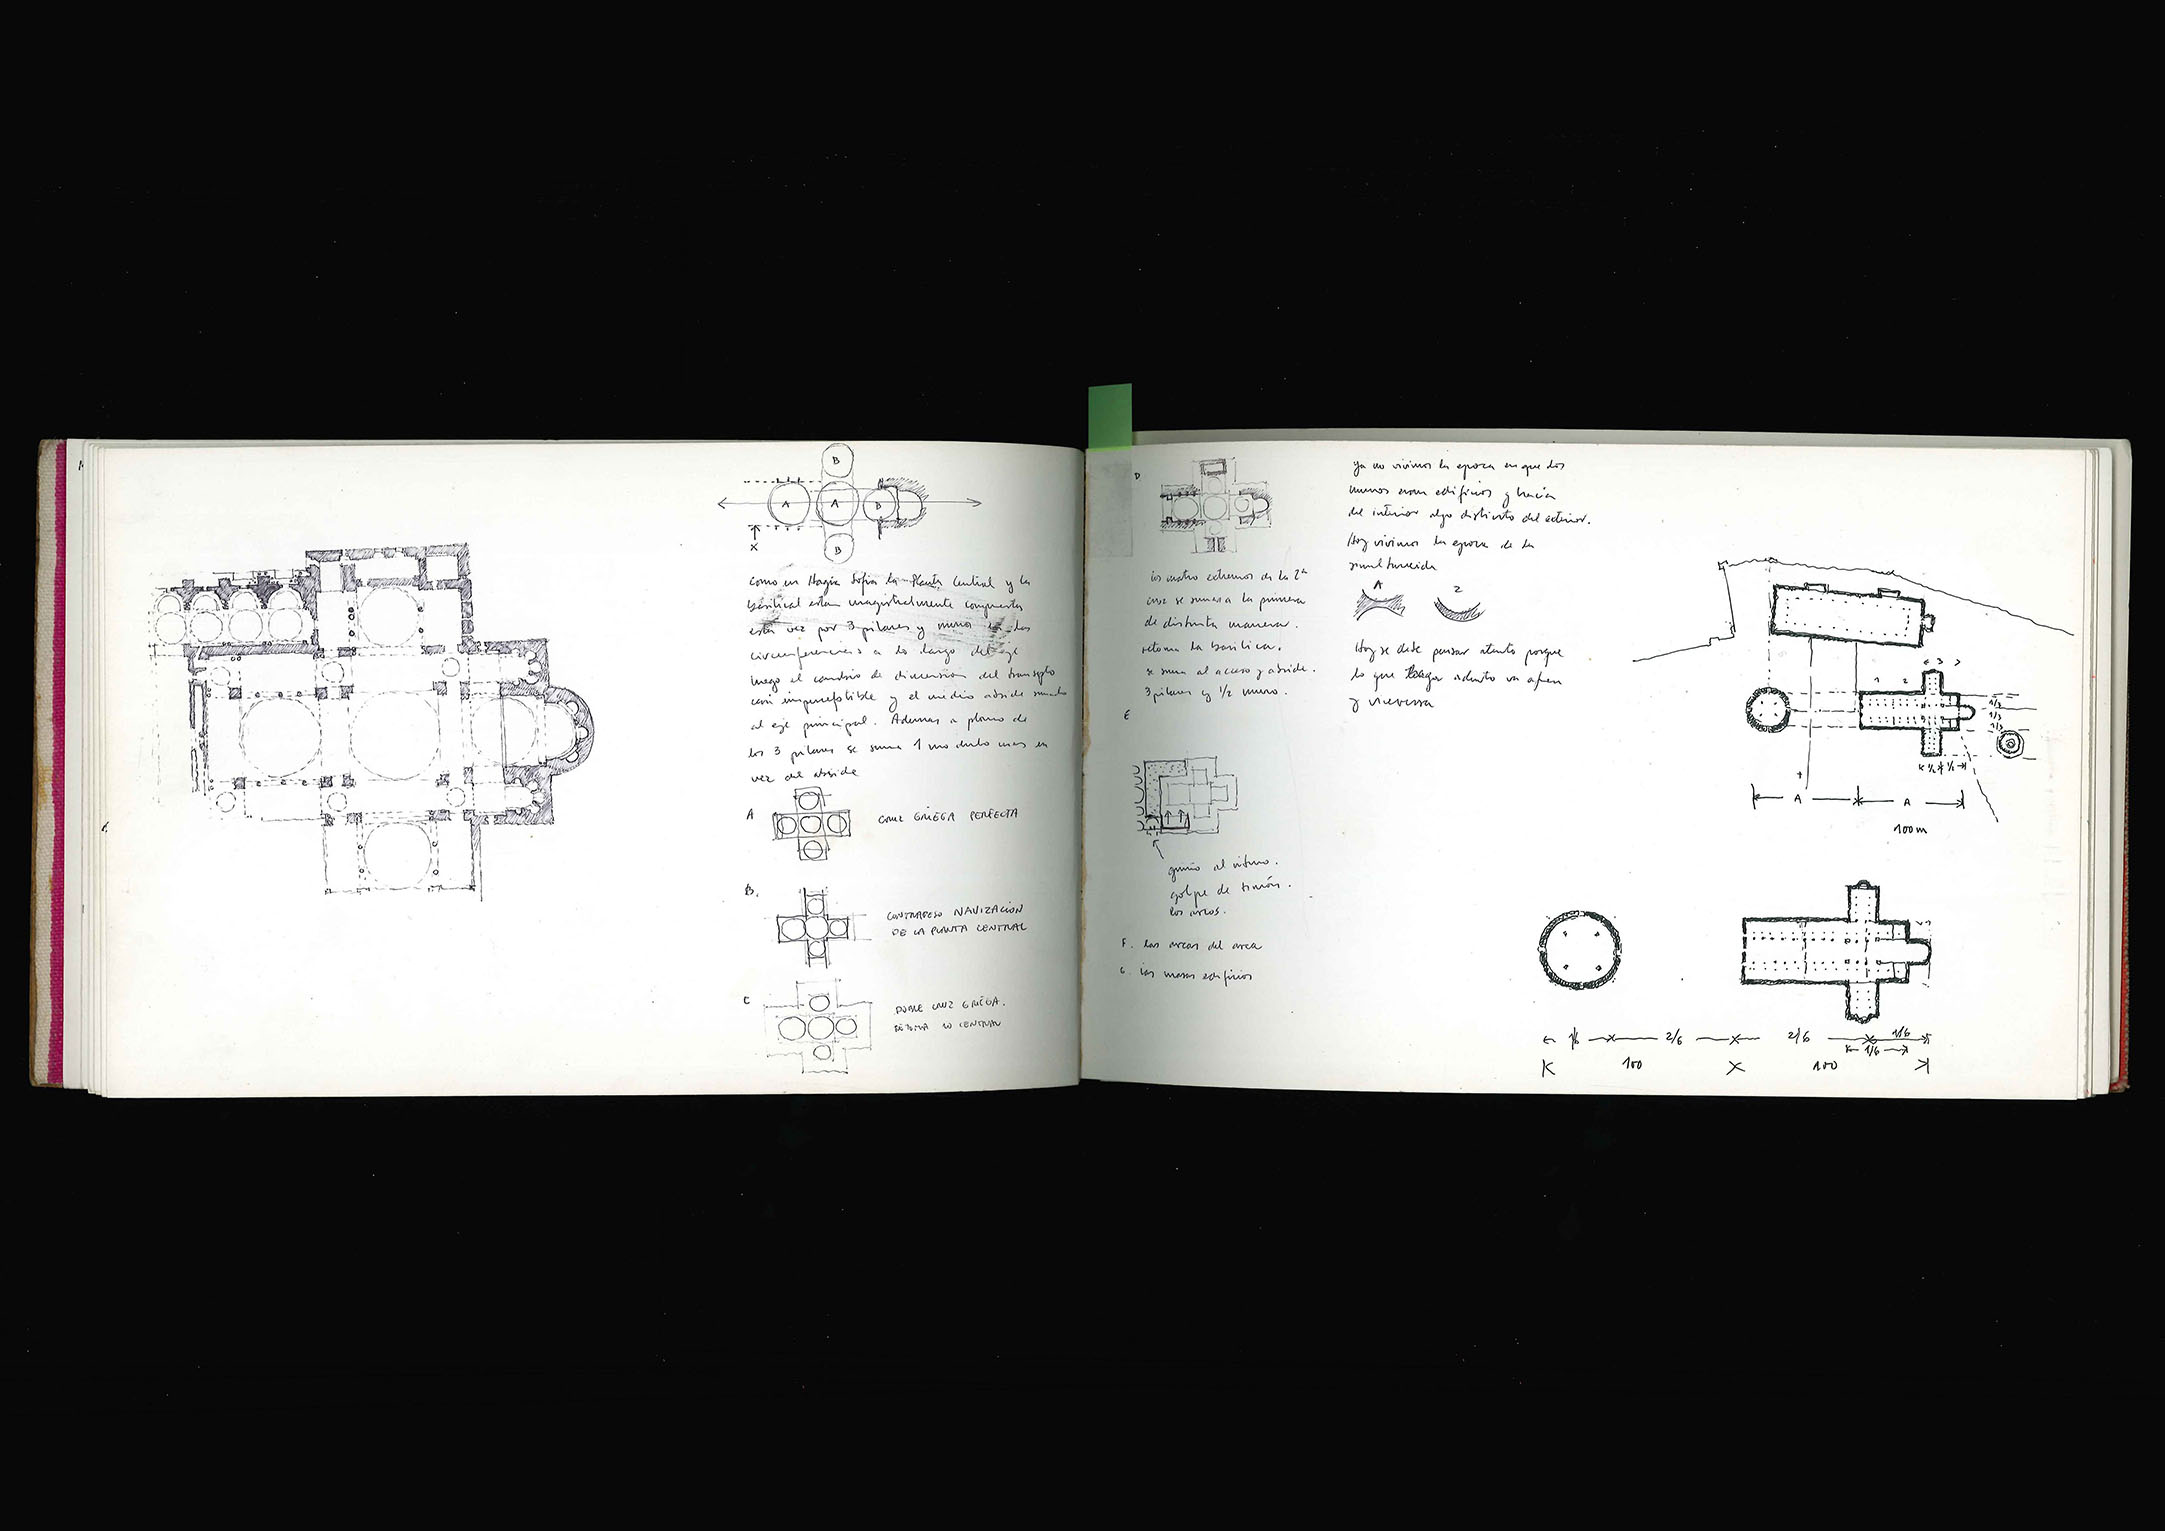 B
A
A
B
B
x
como en Hagia Sofia la Planta Central y la
basilical estan magistralmente conjuntas
esta vez por 3 pilares y muros en las
circunferencias a lo largo del eje
luego el cambio de dimension del transepto
casi imperceptible y el medio abside
al eje principal. Ademas a plomo de
los 3 pilares se suma 1 modulo mas en
vez del abside
A
CRUZ GRIEGA PERFECTA
B.
CONTRAPESO NAVIZACION
DE LA PLANTA CENTRAL
C
DOBLE CRUZ GRIEGA.
RETOMA LO CENTRAL
D
los cuatro extremos de la 2ª
cruz se suman a la primera
de distinta manera.
retoma la basilica.
se suma al acceso y abside.
3 pilares y 1/2 muro.
E
guiño al
golpe de timón.
los arcos.
F. las arcas del arca
G. las masas edificios
ya no vivimos la epoca en que los
muros eran edificios y hacian
del interior algo distinto del exterior.
Hoy vivimos la epoca de la
A
2
Hoy se debe pensar atento porque
lo que haga adentro va afuera
y viceversa
1
2
3
1/3
1/3
1/3
1/2
1/2
A
A
100m
1/6
2/6
2/6
1/6
1/6
100
100